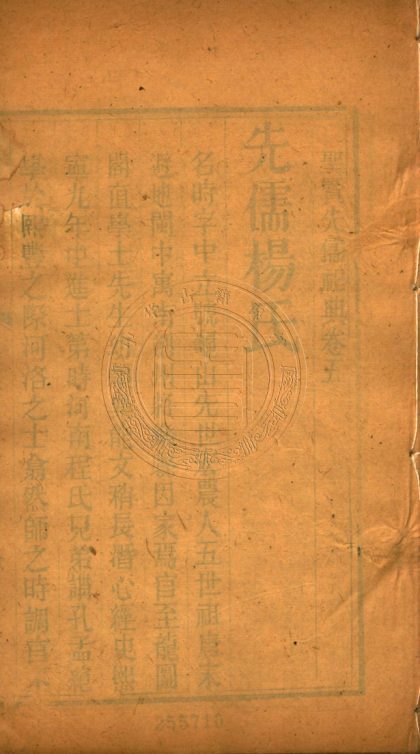 聖賢先儒祀典卷五
先儒楊氏
名時字中立號龜山先世農人五世祖唐末
避地閩中寓因家焉官至龍圖
閣直學士先生文稍長潛心經史熙
寧九年中進士第時河南程氏兄弟講孔孟
學於熙豐之際河洛之士翕然師之時調官不
255710